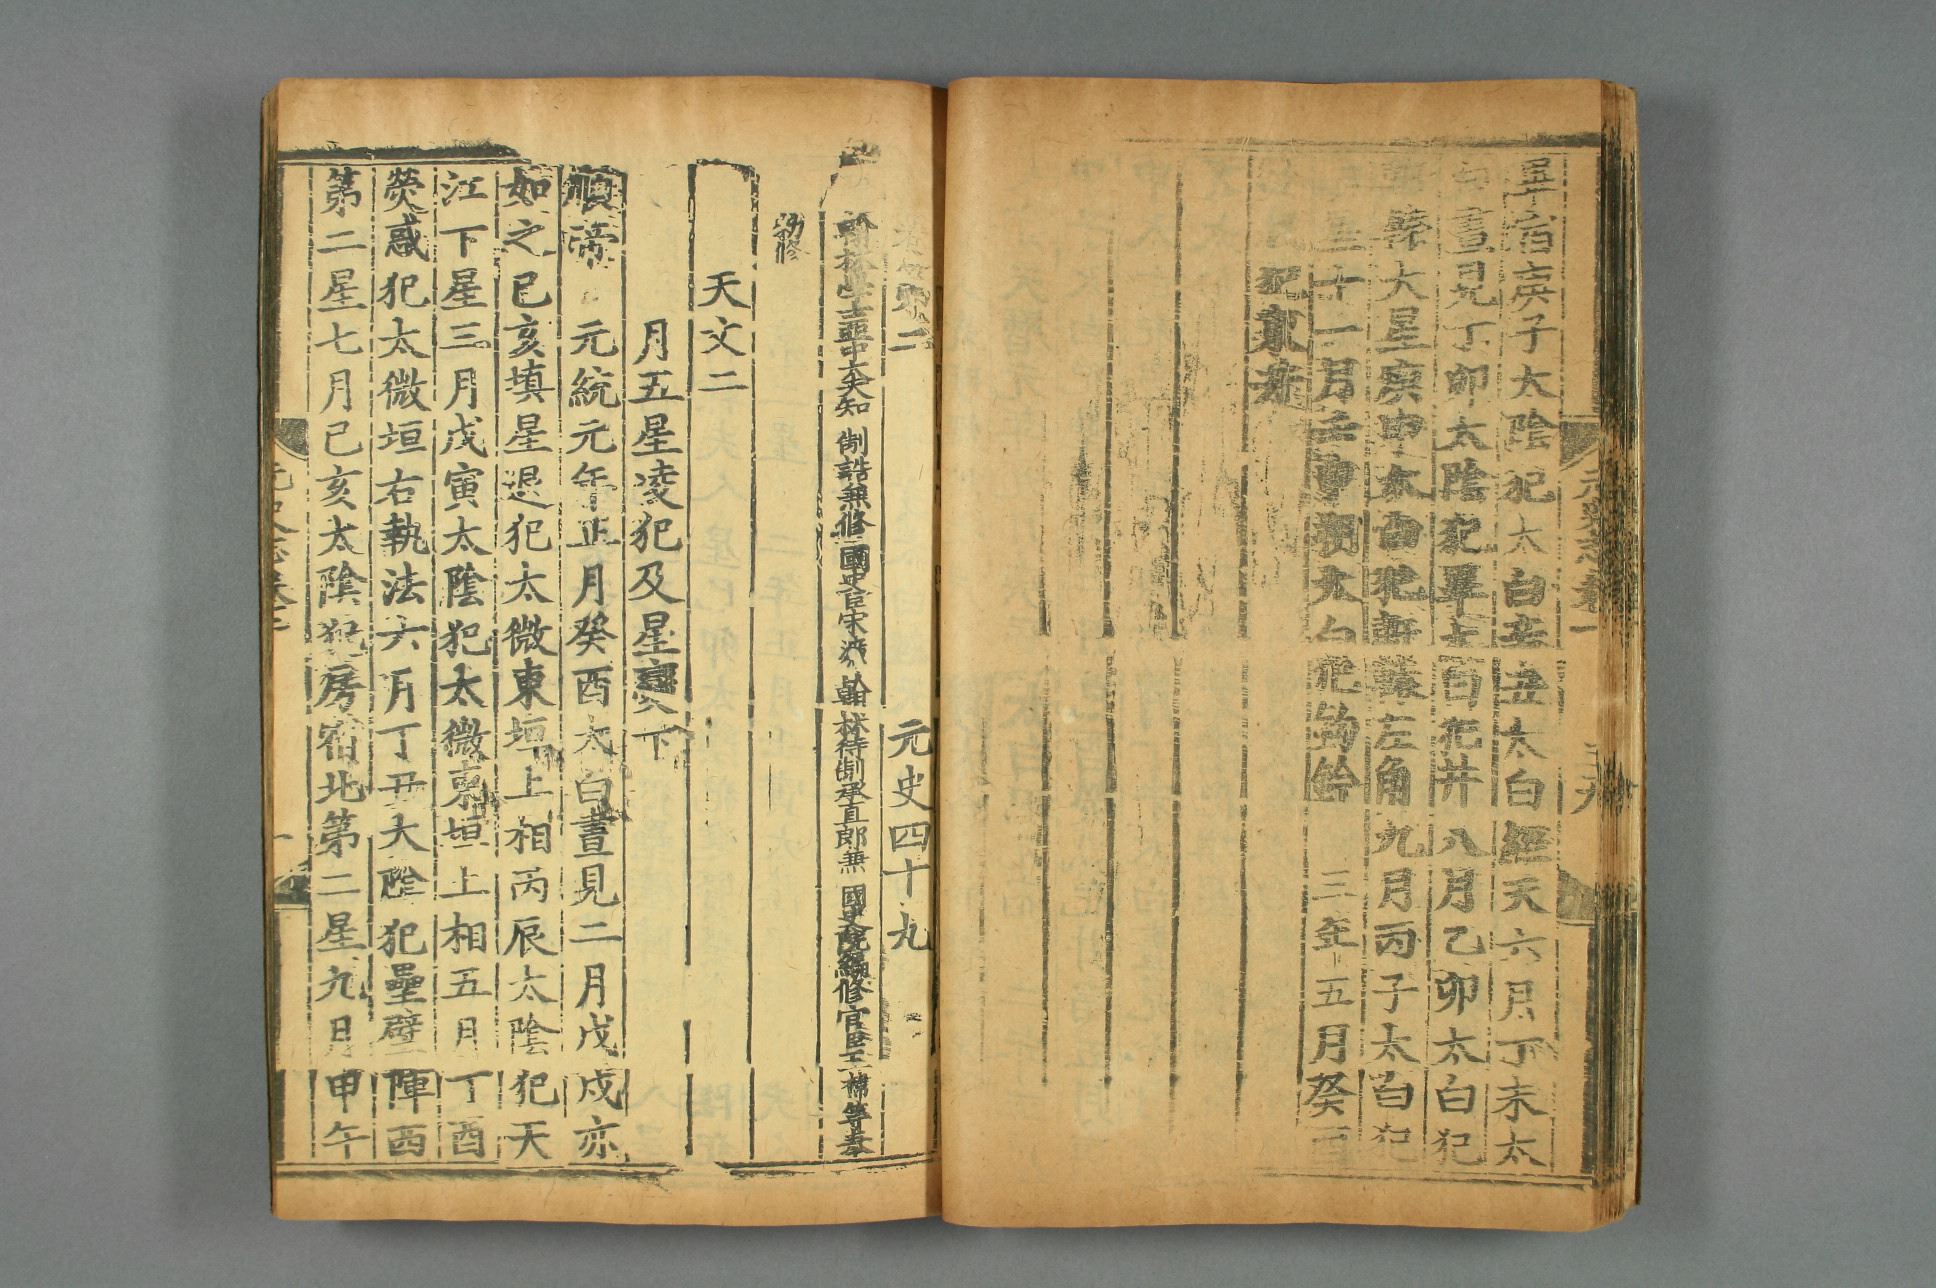 畢宿庚子太陰犯太白辛丑太白經天六月丁未太
白晝見丁卯太陰犯畢太白犯井八月乙卯太白犯
軒轅大星庚申太白犯軒轅左角九月丙子太白犯
十一月壬申朔太白犯鉤鈐 三年五月癸酉
犯
志第二 元史四十九
翰林學士亞中大夫知 制誥兼修國史臣宋濂翰林待制承直郎兼 國史院編修官臣王禕等奉
勑修
天文二
月五星凌犯及星變下
順帝 元統元年正月癸酉太白晝見二月戊戌亦
如之己亥填星退犯太微東垣上相丙辰太陰犯天
江下星三月戊寅太陰犯太微東垣上相五月丁酉
熒惑犯太微垣右執法六月丁丑太陰犯壘壁陣西
第二星七月己亥太陰犯房宿北第二星九月甲午